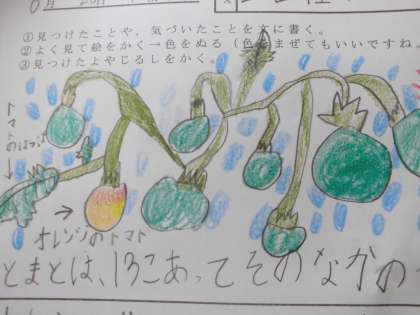 ①見つけたことや，気づいたことを文に書く。
②よく見て絵をかく→色をぬる（色をまぜてもいいですね。
③見つけたよやじるしをかく。
トマトのはっぱ
オレンジのトマト
とまとは、13こあってそのなかの